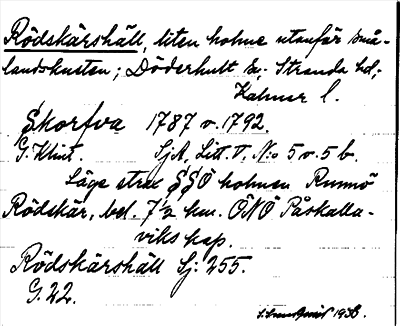 Rödskärshäll, liten holme utanför små-
landskusten; Döderhult s; Stranda hd;
Kalmar l.
Skorfva 1787 o. 1792.
G. Klint. SjA, Litt. V, N:o 5 o. 5 b.
Läge strax SSÖ holmen Runnö
Rödskär, bel. 7½ km. ÖNÖ Påskalla-
viks kap.
Rödskärshäll Sj: 255.
G. 22.
1938.